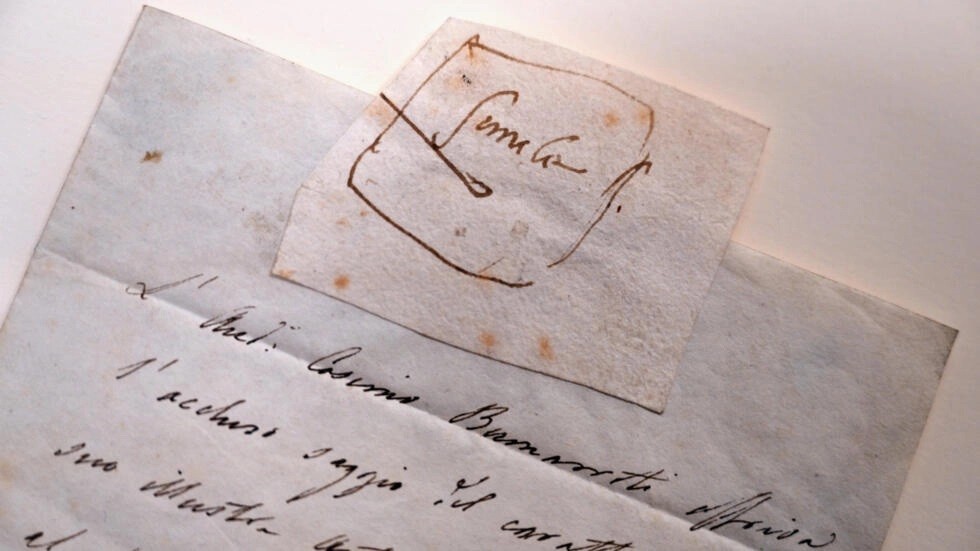 simile
L' Aud: Cosimo Buonarroti offriva
l' accluso saggio del caratt
suo illustre
al